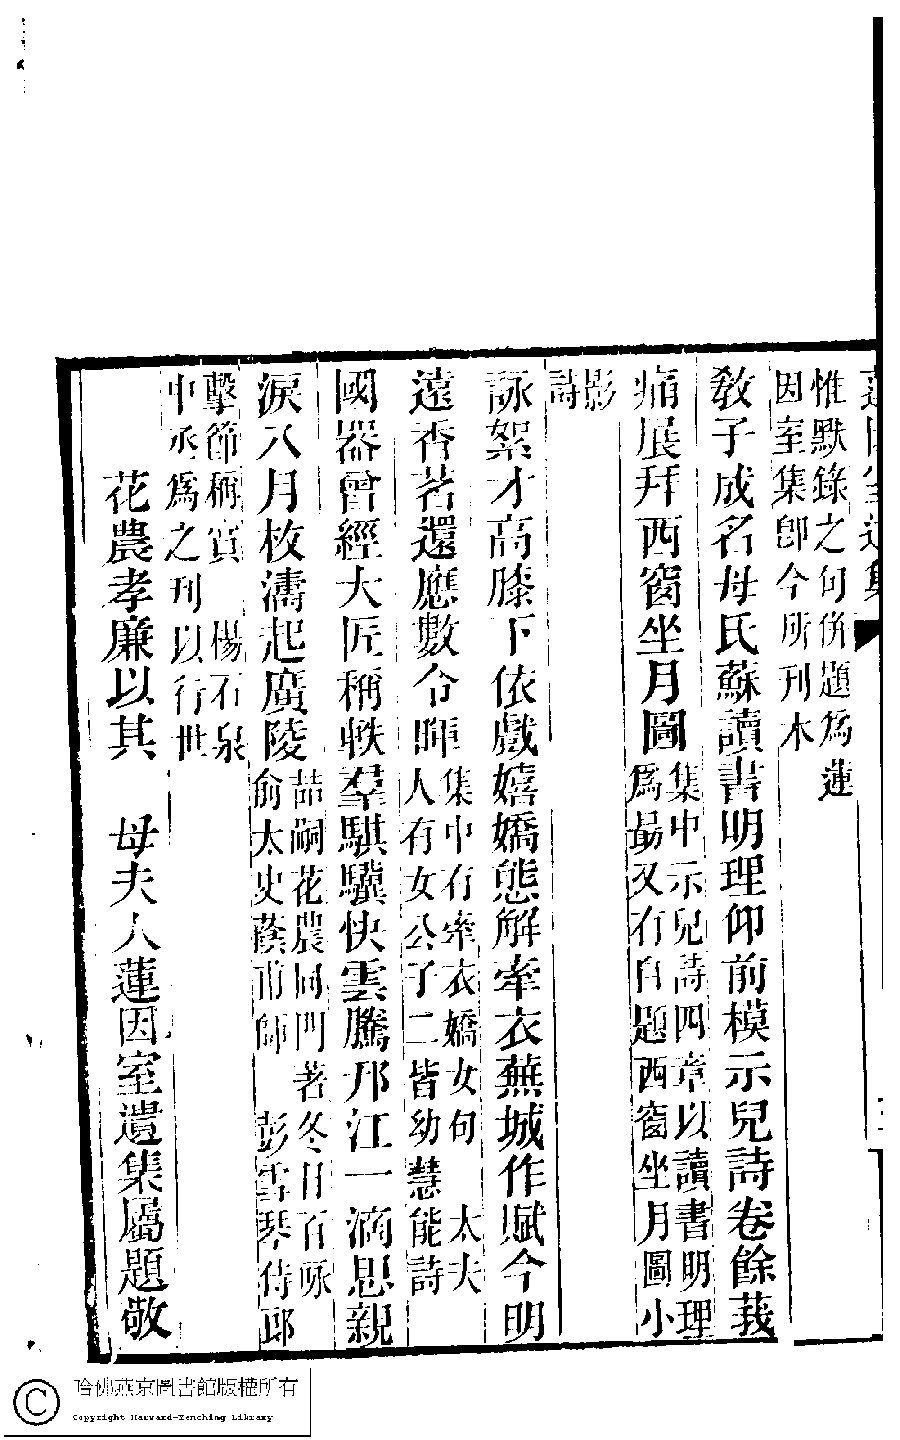 惟默錄之句併題為蓮
因室集卽今所刊木
敎子成名母氏蘇讀書明理仰前模示兒詩卷餘莪
痛展拜西窗坐月圖集中示兒詩四章以讀書明理
為最又有自題西窗坐月圖小
影
詩
詠絮才高膝下依戲嬉嬌態解牽衣蕪城作賦今明
遠香茗還應數令暉集中有牽衣嬌女句 太夫
人有女公子二皆幼慧能詩
國器曾經大匠稱軼羣騏驥快雲騰邗江一滴思親
淚八月枚濤起廣陵喆嗣花農同門著冬日百詠
俞太史蔭甫師 彭雪琴侍郎
擊節稱賞 楊石泉
中丞為之刊以行世
花農孝廉以其 母夫人蓮因室遺集屬題敬
哈佛燕京圖書館版權所有
Copyright Harvard-Yenching Library